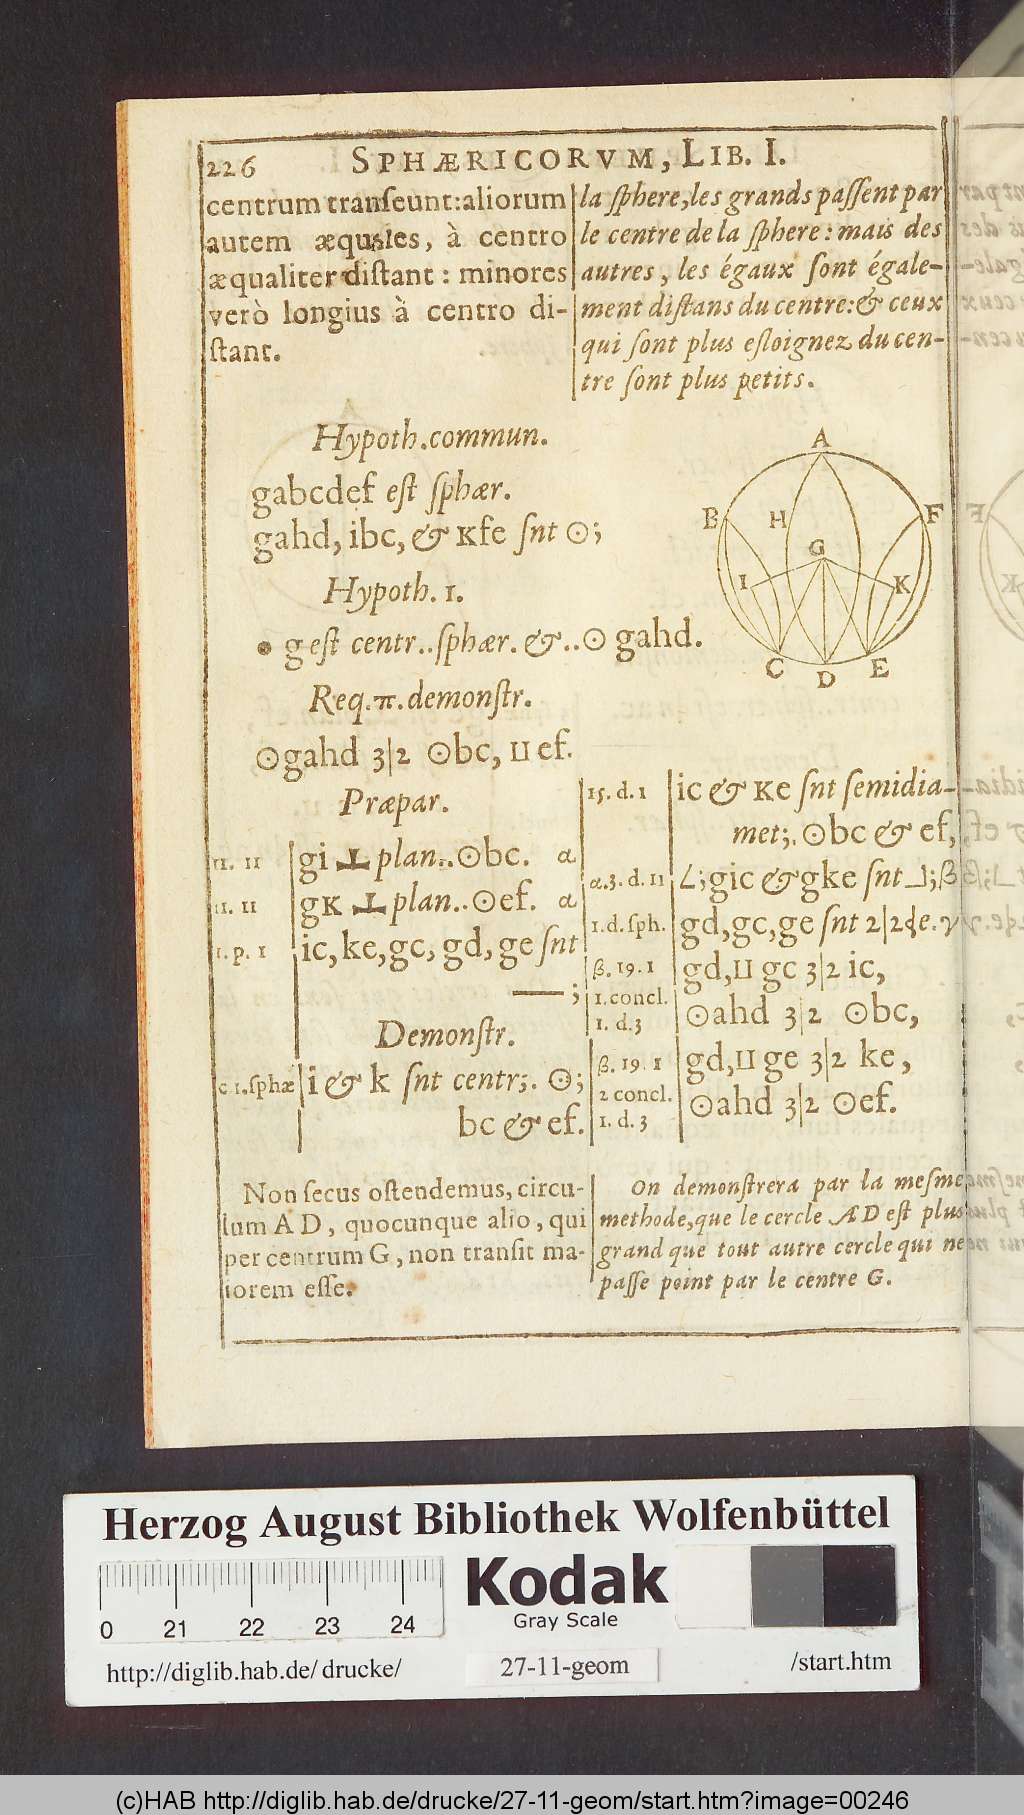 226 SPHÆRICORVM, LIB. I.
centrum transeunt: aliorum
autem æquales, à centro
æqualiter distant: minores
verò longius à centro di-
stant.
la sphere, les grands passent par
le centre de la sphere: mais des
autres, les égaux sont égale-
ment distans du centre: & ceux
qui sont plus esloignez du cen-
tre sont plus petits.
Hypoth. commun.
gabcdef est sphær.
gahd, ibc, & Kfe snt ⊙;
Hypoth. 1.
• g est centr.. sphær. &.. ⊙ gahd.
Req. π. demonstr.
⊙gahd 3|2 ⊙bc, ⊔ ef.
A
B H F
G
I K
C D E
Præpar.
11. 11 gi ⊥ plan.. ⊙bc. α
11. 11 gK ⊥ plan.. ⊙ef. α
1. p. 1 ic, ke, gc, gd, ge snt
—;
Demonstr.
c 1. sphæ i & k snt centr;. ⊙;
bc & ef.
15. d. 1 ic & Ke snt semidia-
met;. ⊙bc & ef,
α. 3. d. 11 ∠; gic & gke snt ⅃; β
1. d. sph. gd, gc, ge snt 2|2 de. γ
β. 19. 1 gd, ⊔ gc 3|2 ic,
1. concl.
1. d. 3 ⊙ahd 3|2 ⊙bc,
β. 19. 1 gd, ⊔ ge 3|2 ke,
2 concl.
1. d. 3 ⊙ahd 3|2 ⊙ef.
Non secus ostendemus, circu-
lum A D, quocunque alio, qui
per centrum G, non transit ma-
iorem esse.
On demonstrera par la mesme
methode, que le cercle AD est plus
grand que tout autre cercle qui ne
passe point par le centre G.
Herzog August Bibliothek Wolfenbüttel
0 21 22 23 24
Kodak
Gray Scale
http://diglib.hab.de/drucke/ 27-11-geom /start.htm
(c)HAB http://diglib.hab.de/drucke/27-11-geom/start.htm?image=00246